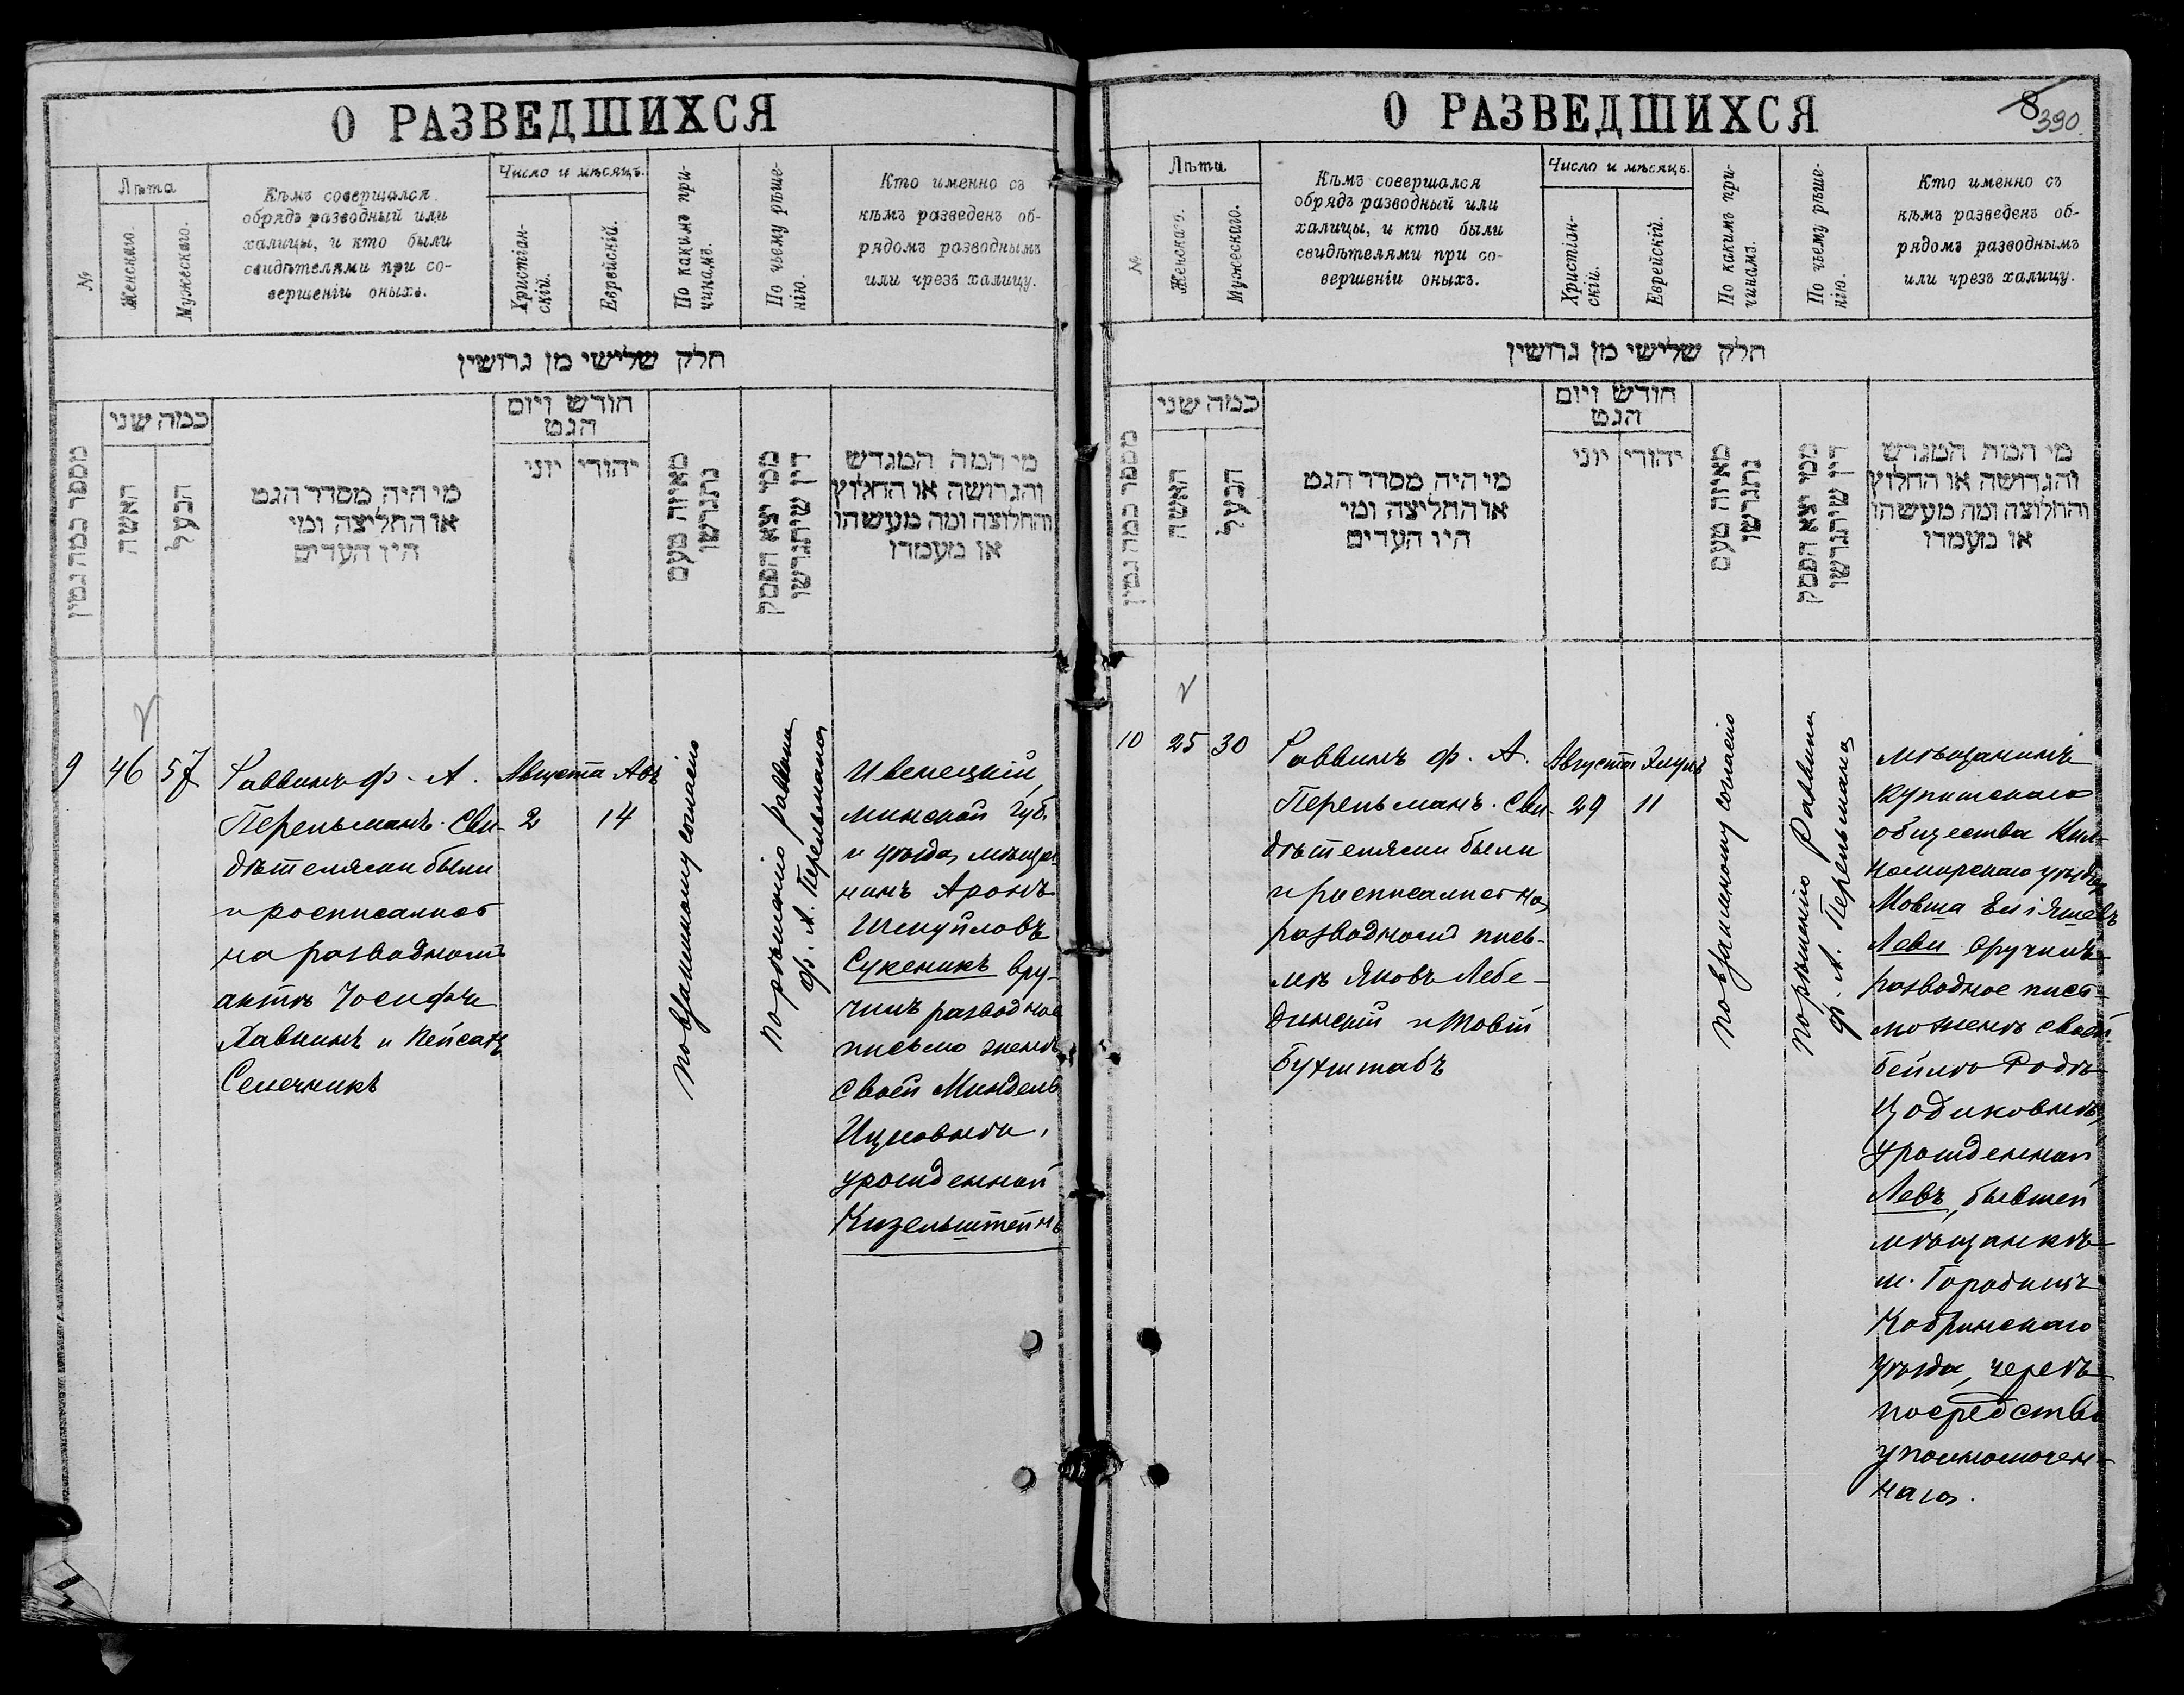 О РАЗВЕДШИХСЯ
№
Лѣта
Женскаго.
Мужескаго.
Кѣмъ совершался
обрядъ разводный или
халицы, и кто были
свидѣтелями при со-
вершеніи оныхъ.
Число и мѣсяцъ.
Христіан-
скій.
Еврейскій.
По какимъ при-
чинамъ.
По чьему рѣше-
нію.
Кто именно съ
кѣмъ разведенъ об-
рядомъ разводнымъ
или чрезъ халицу.
חלק שלישי מן גרושין
מספר כמה גטין
כמה שני
האשה
הבעל
מי היה מסדר הגט
או החליצה ומי
היו העדים
חודש ויום
הגט
יוני
יהודי
מאיזה טעם
נתגרשו
ממי יצא הפסק
דין שיתגרשו
מי המה המגרש
והגרושה או החלוץ
והחלוצה ומה מעשהו
או מעמדו
9
46
57
Раввинъ ф. А.
Перельманъ. Сви-
дѣтелями были
и росписались
на разводномъ
актѣ Іосифъ
Хавкинъ и Пейсахъ
Сенечникъ
Августа
2
Авъ
14
По взаимному согласію
По рѣшенію раввина
ф. А. Перельмана
Ивенецкій,
Минской губ.
и уѣзда, мѣща-
нинъ Аронъ
Шмуйловъ
Сукеникъ вру-
чилъ разводное
письмо женѣ
своей Миндель
Ицковнѣ,
урожденной
Кизельштейнъ
О РАЗВЕДШИХСЯ
8
390.
№
Лѣта
Женскаго.
Мужескаго.
Кѣмъ совершался
обрядъ разводный или
халицы, и кто были
свидѣтелями при со-
вершеніи оныхъ.
Число и мѣсяцъ.
Христіан-
скій.
Еврейскій.
По какимъ при-
чинамъ.
По чьему рѣше-
нію.
Кто именно съ
кѣмъ разведенъ об-
рядомъ разводнымъ
или чрезъ халицу.
חלק שלישי מן גרושין
מספר כמה גטין
כמה שני
האשה
הבעל
מי היה מסדר הגט
או החליצה ומי
היו העדים
חודש ויום
הגט
יוני
יהודי
מאיזה טעם
נתגרשו
ממי יצא הפסק
דין שיתגרשו
מי המה המגרש
והגרושה או החלוץ
והחלוצה ומה מעשהו
או מעמדו
10
25
30
Раввинъ ф. А.
Перельманъ. Сви-
дѣтелями были
и росписались на
разводномъ пись-
мѣ Яковъ Лебе-
динскій и Товій
Бухштабъ
Августа
29
Элулъ
11
По взаимному согласію
По рѣшенію Раввина
ф. А. Перельмана
Мѣщанинъ
Купишскаго
общества Виль-
комирскаго уѣзда
Мовша Еліяшевъ
Леви вручилъ
разводное пись-
мо женѣ своей
Бейлѣ Родѣ
Цодиковнѣ,
урожденной
Левъ, бывшей
мѣщанкѣ
м. Городищъ
Кобринскаго
уѣзда, черезъ
посредство
уполномочен-
наго.